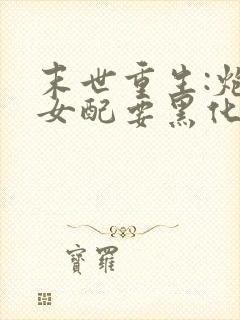 末世重生:炮
女配要黑化
寶羅